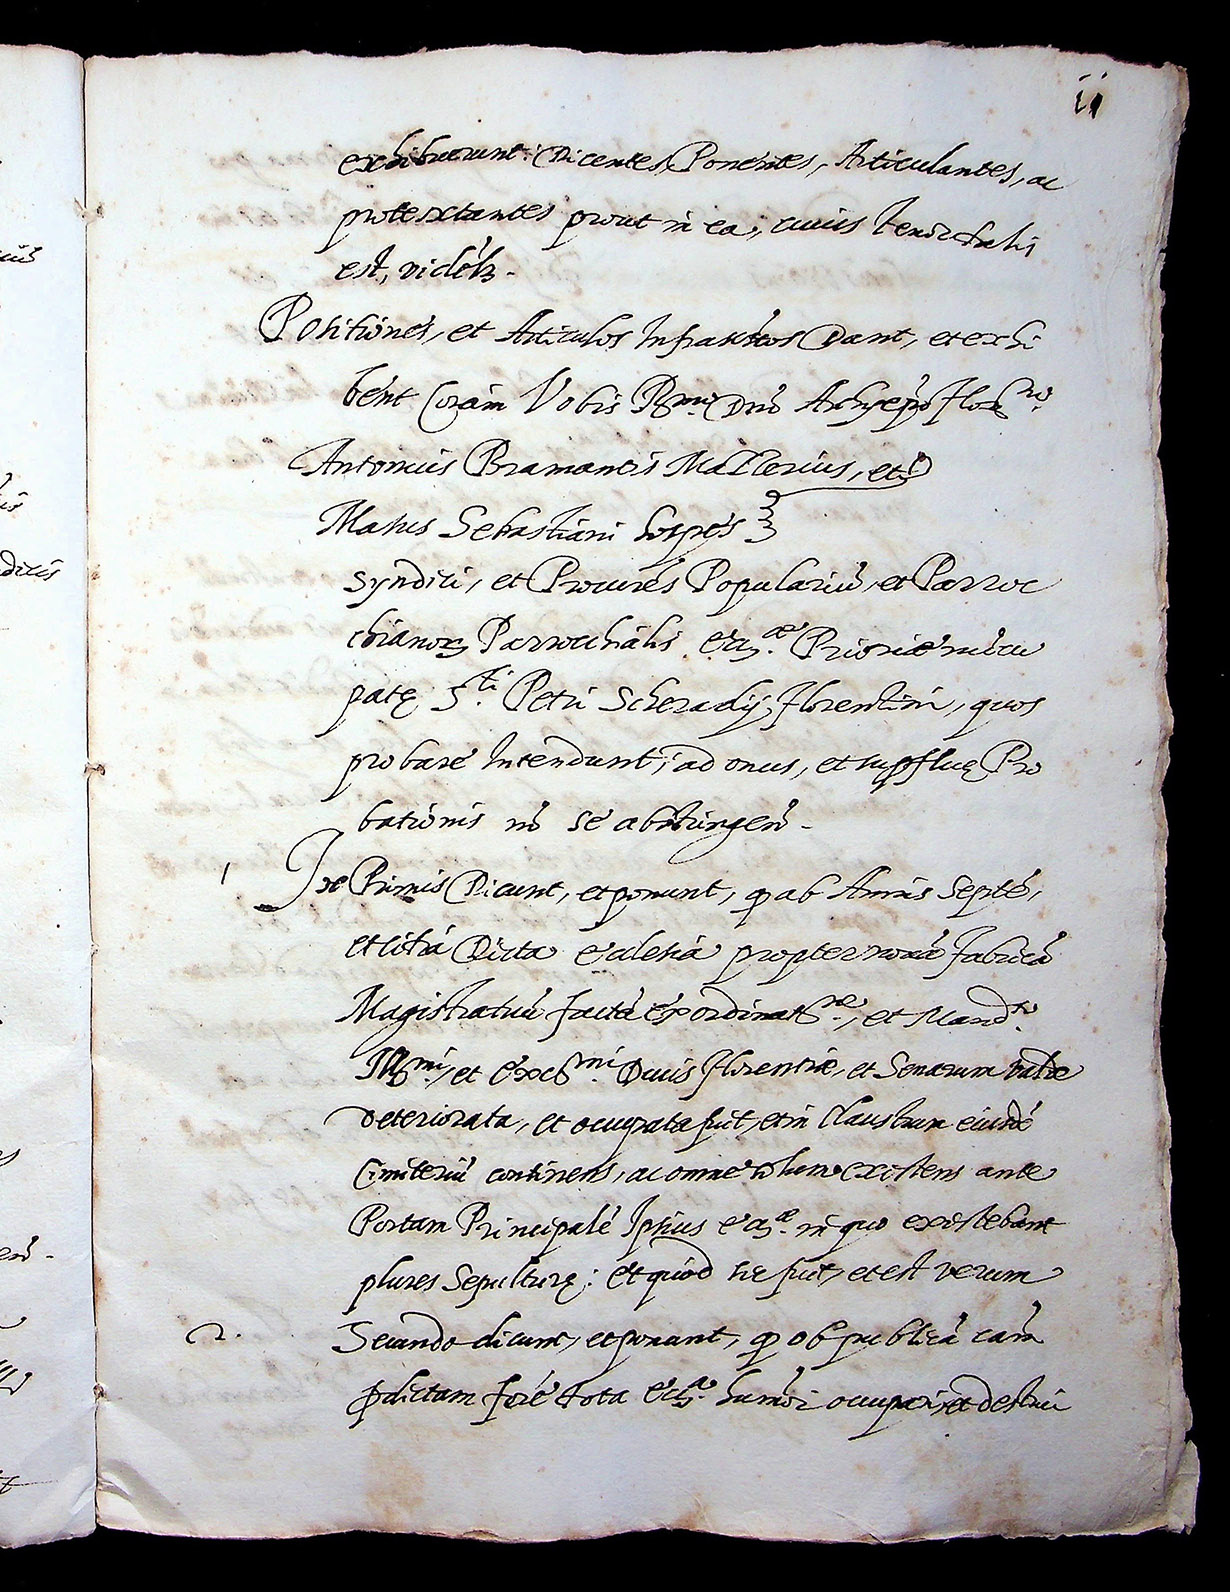 11
exhibuerunt: Dicentes, Ponentes, Articulantes, ac
protextantes prout in ea, cuius tenor talis
est, videłz.
Positiones, et Articulos Infraſctos Dant, et exhi
bent Coram Vobis Rmo. Dno Archiepõ Florno.
Antonius Bramantis Matterius, et
Matus Sebastiani hospes
Syndici, et Procures Populariũ, et Parroc
chianorz Parrochialis ecclæ. Prioriæ nũcu
patę Sti. Petri Scheradij, Florentini, quos
probare Intendunt, ad onus, et supfluę Pro
bationis nõ se abstringen̄.
1 In Primis Dicunt, et ponunt, qp ab Annis Septẽ,
et citra Dicta Ecclesia propter novã fabricã
Magistratuũ factã ex ordinatne., et Mandto.
Illmi., et Excelmi. Ducis Florentiæ, et Senarum valde
deteriorata, et occupata fuit, et in Claustrum eiusdẽ
Cimiteriũ continens, ac omne solum existens ante
Portam Principalẽ Ipsius ecclæ. in quo existebant
plures Sepulturę: et quod sic fuit, et est verum
2. Secundo dicunt, et ponunt, qp ob publicã cam̃
pdictam ferè tota eccla. humõi occupari, et destrui